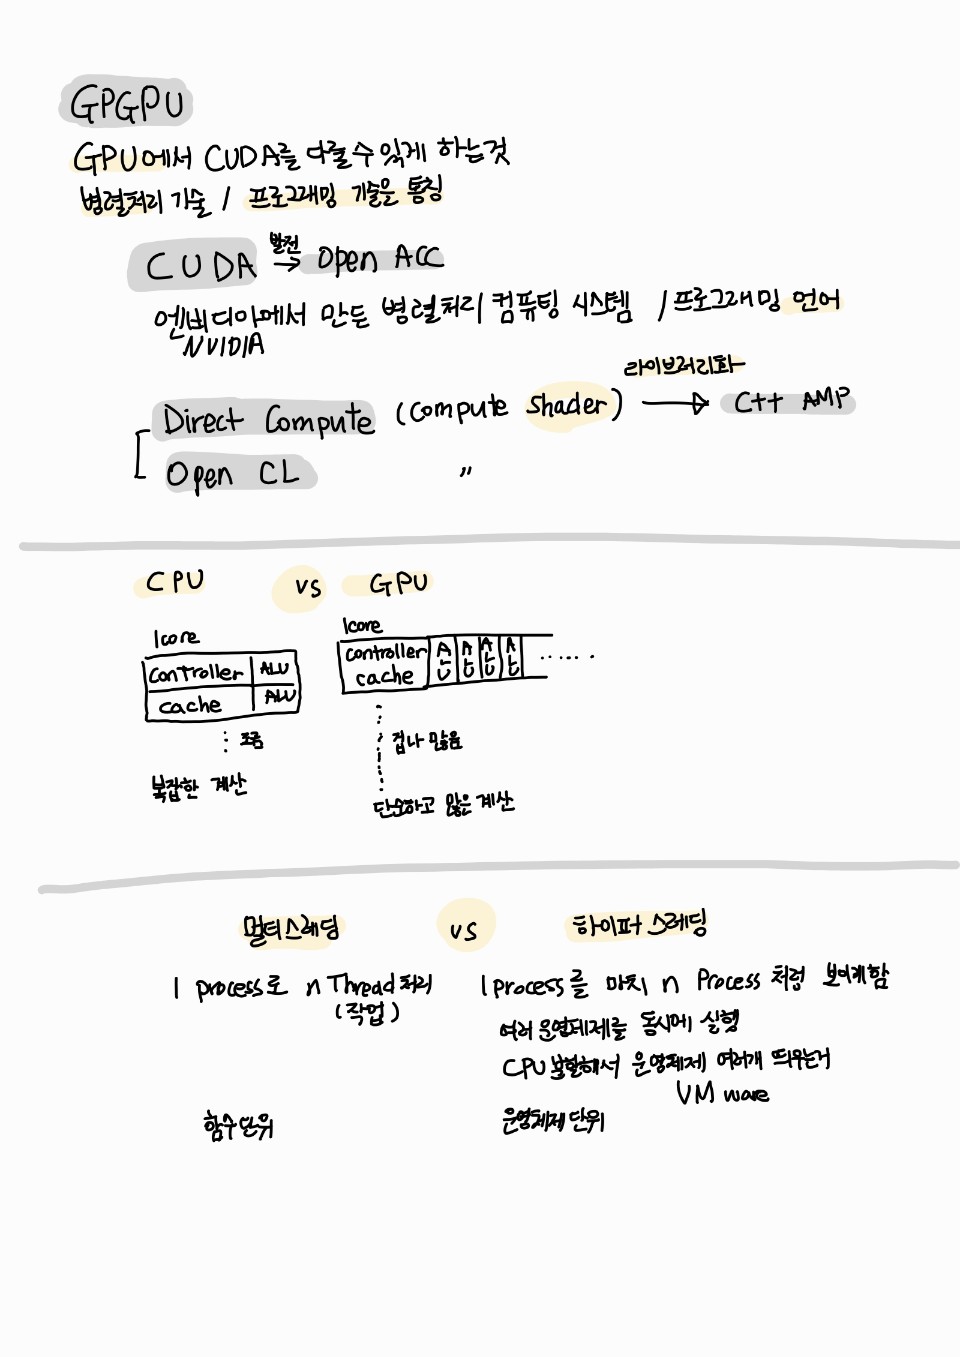 GPGPU
GPU에서 CUDA를 다룰 수 있게 하는것
병렬처리 기술 / 프로그래밍 기술을 통칭
CUDA 발전 → Open ACC
엔비디아에서 만든 병렬처리 컴퓨팅 시스템 / 프로그래밍 언어
NVIDIA
라이브러리화
Direct Compute (Compute Shader) → C++ AMP
Open CL 〃
CPU vs GPU
1core
controller ALU
cache ALU
조금
복잡한 계산
1core
controller
cache
ALU ALU ALU ALU ......
겁나 많음
단순하고 많은 계산
멀티스레딩 vs 하이퍼 스레딩
1 process로 n Thread 처리
(작업)
함수단위
1 process를 마치 n Process 처럼 보이게함
여러 운영체제를 동시에 실행
CPU 분할해서 운영체제 여러개 띄우는거
VM ware
운영체제 단위